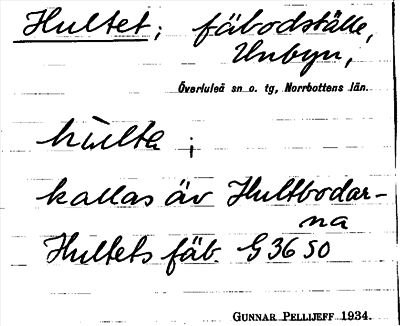 Hultet; fäbodställe,
Unbyn,
Överluleå sn o. tg, Norrbottens län.
hulta ;
kallas äv Hultbodar-
na
Hultets fäb. G 36 SO
GUNNAR PELLIJEFF 1934.